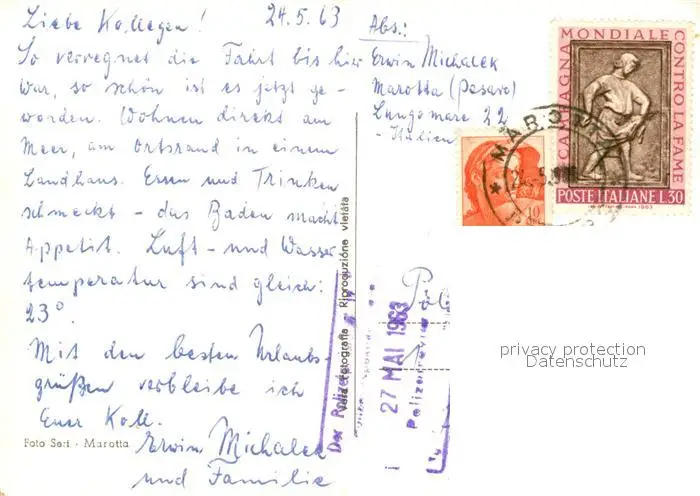 Liebe Kollegen! 24.5.63
So verregnet die Fahrt bis hier
war, so schön ist es jetzt ge-
worden. Wohnen direkt am
Meer, am Ortsrand in einem
Landhaus. Essen und Trinken
schmeckt - das Baden macht
Appetit. Luft- und Wasser
temperatur sind gleich:
23°.
Mit den besten Urlaubs-
grüßen verbleibe ich
Euer Koll.
Erwin Michalek
und Familie
Foto Seri - Marotta
Vera Fotografia Riproduzione vietata
Abs.:
Erwin Michalek
Marotta (Pesaro)
Lungomare 22
- Italien
CAMPAGNA MONDIALE CONTRO LA FAME
POSTE ITALIANE L.30
10
MAROTTA
Der Polize
27 MAI 1963
Polizeirevier
privacy protection
Datenschutz